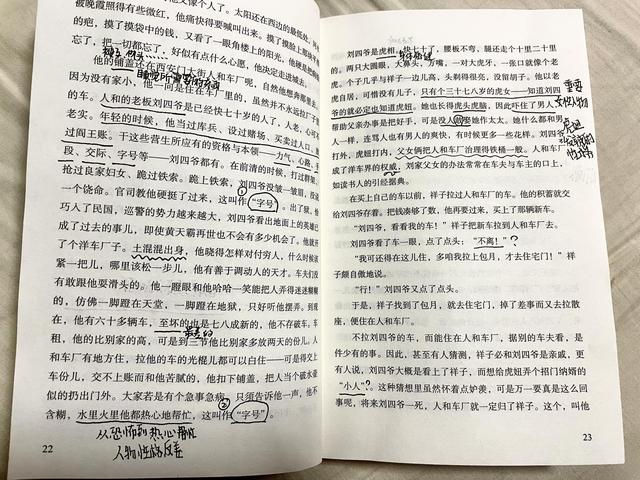 被晚霞照得有些微红，他痛快得要喊叫出来。摸了摸脸上那块平
的疤，摸了摸袋中的钱，又看了一眼角楼上的阳光，他硬是把病
忘了，把一切都忘了，好似有点什么心愿，他决定走进城去。
他的铺盖还在西安门大街人和车厂呢，自然他想奔那里去。
因为没有家小，他一向是住在车厂里的，虽然并不永远拉厂子里
的车。人和的老板刘四爷是已经快七十岁的人了，人老，心可不
老实。年轻的时候，他当过库兵、设过赌场、买卖过人口、放
过阎王账。干这些营生所应有的资格与本领——力气、心路、手
段、交际、字号等——刘四爷都有。在前清的时候，打过群架，
抢过良家妇女、跪过铁索。跪上铁索，刘四爷没皱一皱眉，没说
一个饶命。官司教他硬挺了过来，这叫作“字号”。出了狱，恰
巧入了民国，巡警的势力越来越大，刘四爷看出地面上的英雄已
成了过去的事儿，即使黄天霸再世也不会有多少机会了。他就开
了个洋车厂子。土混混出身，他晓得怎样对付穷人，什么时候该
紧一把儿，哪里该松一步儿，他有善于调动人的天才。车夫们没
有敢跟他耍滑头的。他一瞪眼和他哈哈一笑能把人弄得迷迷糊糊
的，仿佛一脚蹬在天堂，一脚蹬在地狱，只好听他摆弄。到现
在，他有六十多辆车，至坏的也是七八成新的，他不存破车。车
租，他的比别家的高，可是到三节他比别家多放两天的份儿。人
和车厂有地方住，拉他的车的光棍儿都可以白住——可是得交上
车份儿，交不上账而和他苦腻的，他扣下铺盖，把人当个破水壶
似的扔出门外。大家若是有个急事急病，只须告诉他一声，他不
含糊，水里火里他都热心地帮忙，这叫作“字号”。
从恐怖到热心帮忙
人物性格反差
22
刘四爷是虎相。快七十了，腰板不弯，腿还走个十里二十里
的。两只大圆眼，大鼻头，方嘴，一对大虎牙，一张口就像个老
虎。个子几乎与祥子一边儿高，头剃得很亮，没留胡子。他以老
虎自居，可惜没有儿子，只有个三十七八岁的虎女——知道刘四
爷的就必定也知道虎妞。她也长得虎头虎脑，因此吓住了男人，
帮助父亲办事是把好手，可是没人敢娶她作太太。她什么都和男
人一样，连骂人也有男人的爽快，有时候更多一些花样。刘四爷
打外，虎妞打内，父女俩把人和车厂治理得铁桶一般。人和车厂
成了洋车界的权威，刘家父女的办法常常在车夫与车主的口上，
如读书人的引经据典。
在买上自己的车以前，祥子拉过人和车厂的车。他的积蓄就交
给刘四爷存着。把钱凑够了数，他再要过来，买上了那辆新车。
“刘四爷，看看我的车！”祥子把新车拉到人和车厂去。
刘四爷看了车一眼，点了点头：“不离！”
“我可还得在这儿住，多咱我拉上包月，才去住宅门！”祥
子颇自傲地说。
“行！”刘四爷又点了点头。
于是，祥子找到了包月，就去住宅门，掉了差事而又去拉散
座，便住在人和车厂。
不拉刘四爷的车，而能住在人和车厂，据别的车夫看，是
件少有的事。因此，甚至有人猜测，祥子必和刘四爷是亲戚，更
有人说，刘四爷大概是看上了祥子，而想给虎妞弄个招门纳婿的
“小人”。这种猜想里虽然怀着点妒羡，可是万一要真是这么回
事呢，将来刘四爷一死，人和车厂就一定归了祥子。这个，叫他
重要
女性人物
虎妞
23